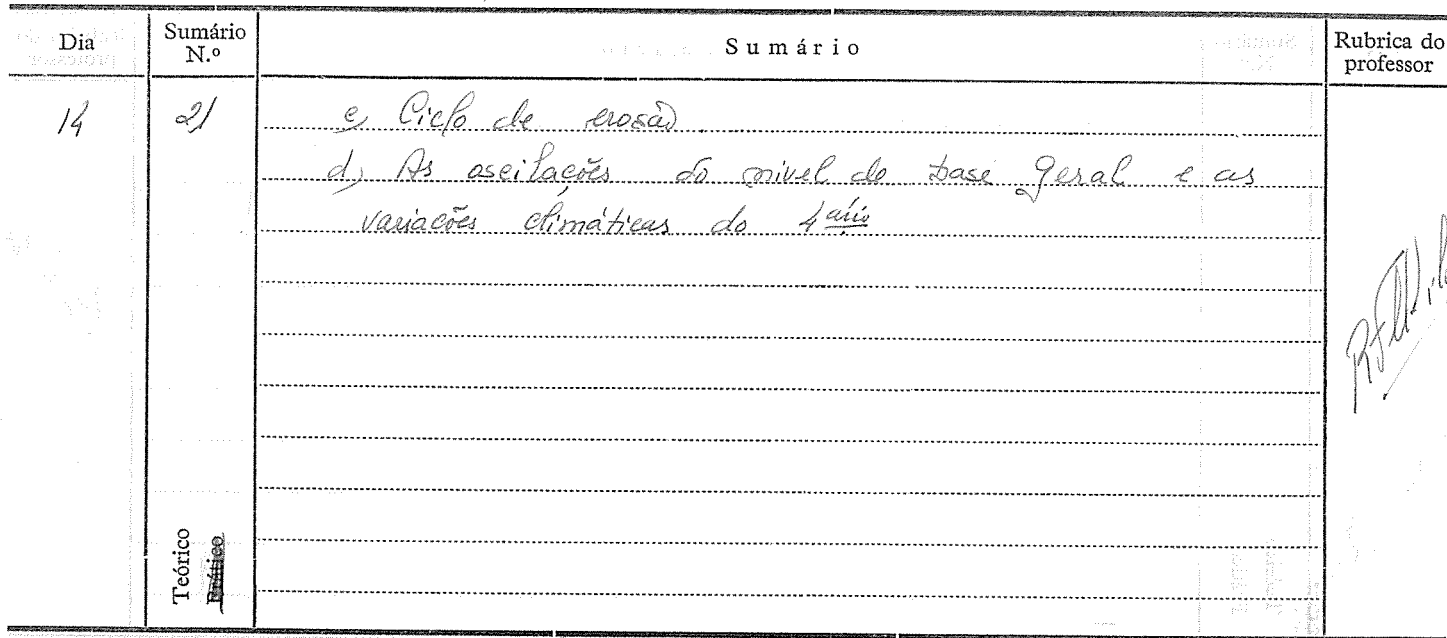 Dia
Sumário
N.º
Sumário
Rubrica do
professor
14
21
c) Ciclo de erosão
d) As oscilações do nivel de base geral e as
variações climáticas do 4ário
Teórico
Prático